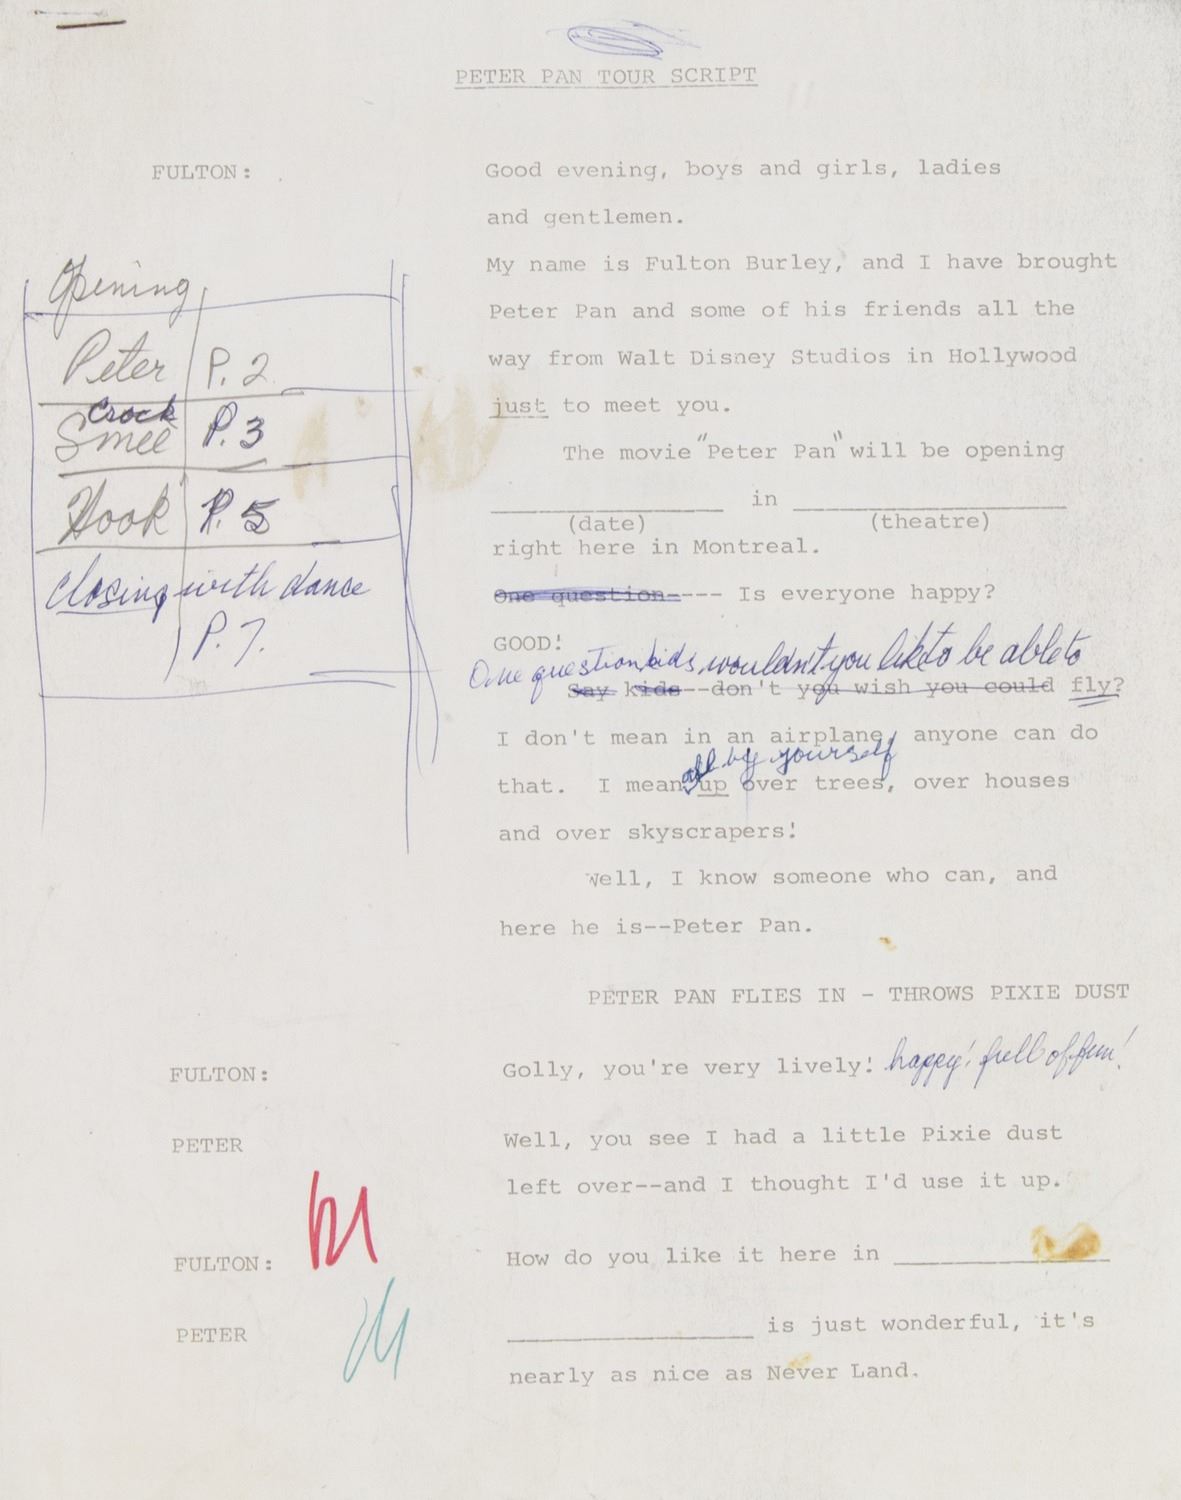 PETER PAN TOUR SCRIPT
FULTON:
Good evening, boys and girls, ladies
and gentlemen.
My name is Fulton Burley, and I have brought
Peter Pan and some of his friends all the
way from Walt Disney Studios in Hollywood
just to meet you.
The movie "Peter Pan" will be opening
____________ in ____________
(date) (theatre)
right here in Montreal.
One question---- Is everyone happy?
GOOD!
One question kids, wouldn't you like to be able to
Say kids--don't you wish you could fly?
I don't mean in an airplane, anyone can do
all by yourself
that. I mean up over trees, over houses
and over skyscrapers!
Well, I know someone who can, and
here he is--Peter Pan.
PETER PAN FLIES IN - THROWS PIXIE DUST
FULTON:
Golly, you're very lively! happy! full of fun!
PETER
Well, you see I had a little Pixie dust
left over--and I thought I'd use it up.
FULTON:
How do you like it here in ____________
PETER
____________ is just wonderful, it's
nearly as nice as Never Land.
Opening
Peter P. 2
Crock
Smee P. 3
Hook P. 5
Closing with dance
P. 7.